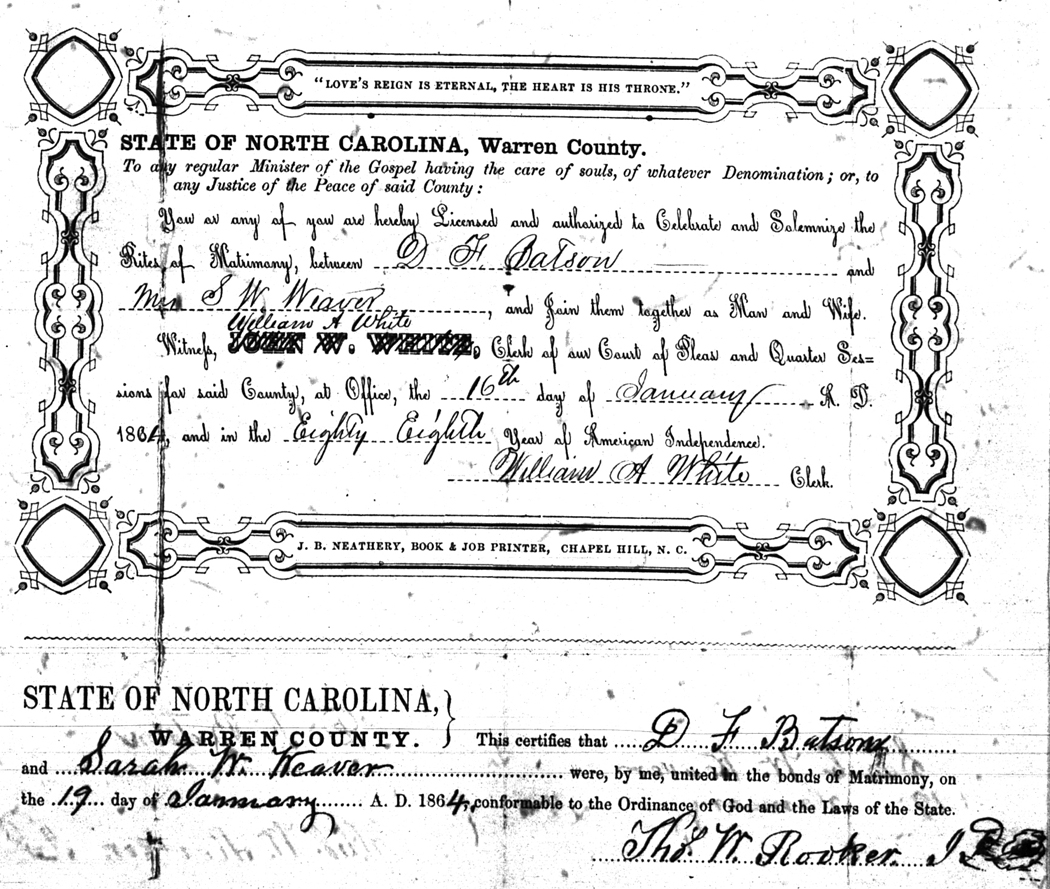 "LOVE'S REIGN IS ETERNAL, THE HEART IS HIS THRONE."
STATE OF NORTH CAROLINA, Warren County.
To any regular Minister of the Gospel having the care of souls, of whatever Denomination; or, to
any Justice of the Peace of said County:
You or any of you are hereby Licensed and authorized to Celebrate and Solemnize the
Rites of Matimony, between D F. Batson and
Mrs S W. Weaver, and Join them together as Man and Wife.
William A White
Witness, JOHN W. WHITE, Clerk of our Court of Pleas and Quarter Ses=
sions for said County, at Office, the 16th day of January A. D.
1864, and in the Eighty Eighth Year of American Independence.
William A White Clerk.
J. B. NEATHERY, BOOK & JOB PRINTER, CHAPEL HILL, N. C.
STATE OF NORTH CAROLINA,
WARREN COUNTY. } This certifies that D F Batson
and Sarah W. Weaver were, by me, united in the bonds of Matrimony, on
the 19 day of January A. D. 1864, conformable to the Ordinance of God and the Laws of the State.
Thos. W. Rooker J P